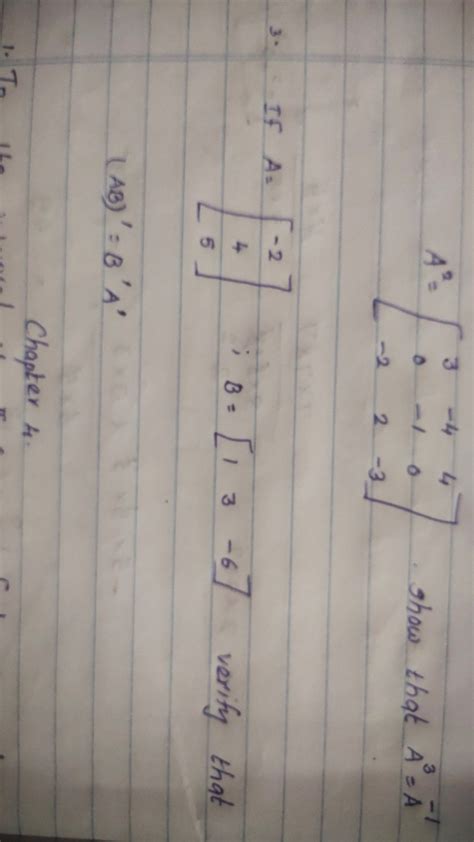 A² = [ 3 -4 4
0 -1 0
-2 2 -3 ] . show that A³ = A⁻¹
3. If A = [ -2
4
5 ] ; B = [ 1 3 -6 ] verify that
(AB)' = B'A'
Chapter 4.
1. To the